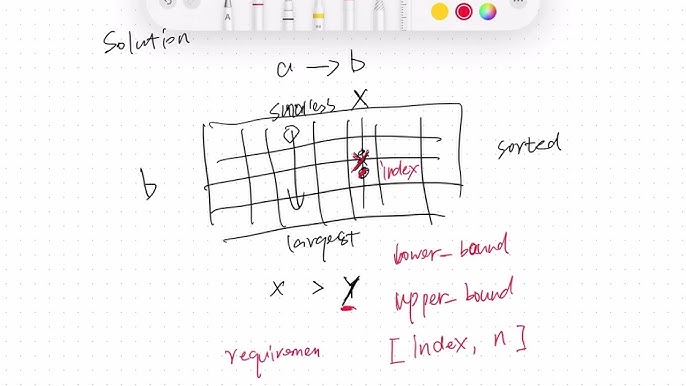 Solution
a → b
smalless X
b
sorted
index
largest
lower_bound
x > y
upper_bound
requiremen
[index, n]